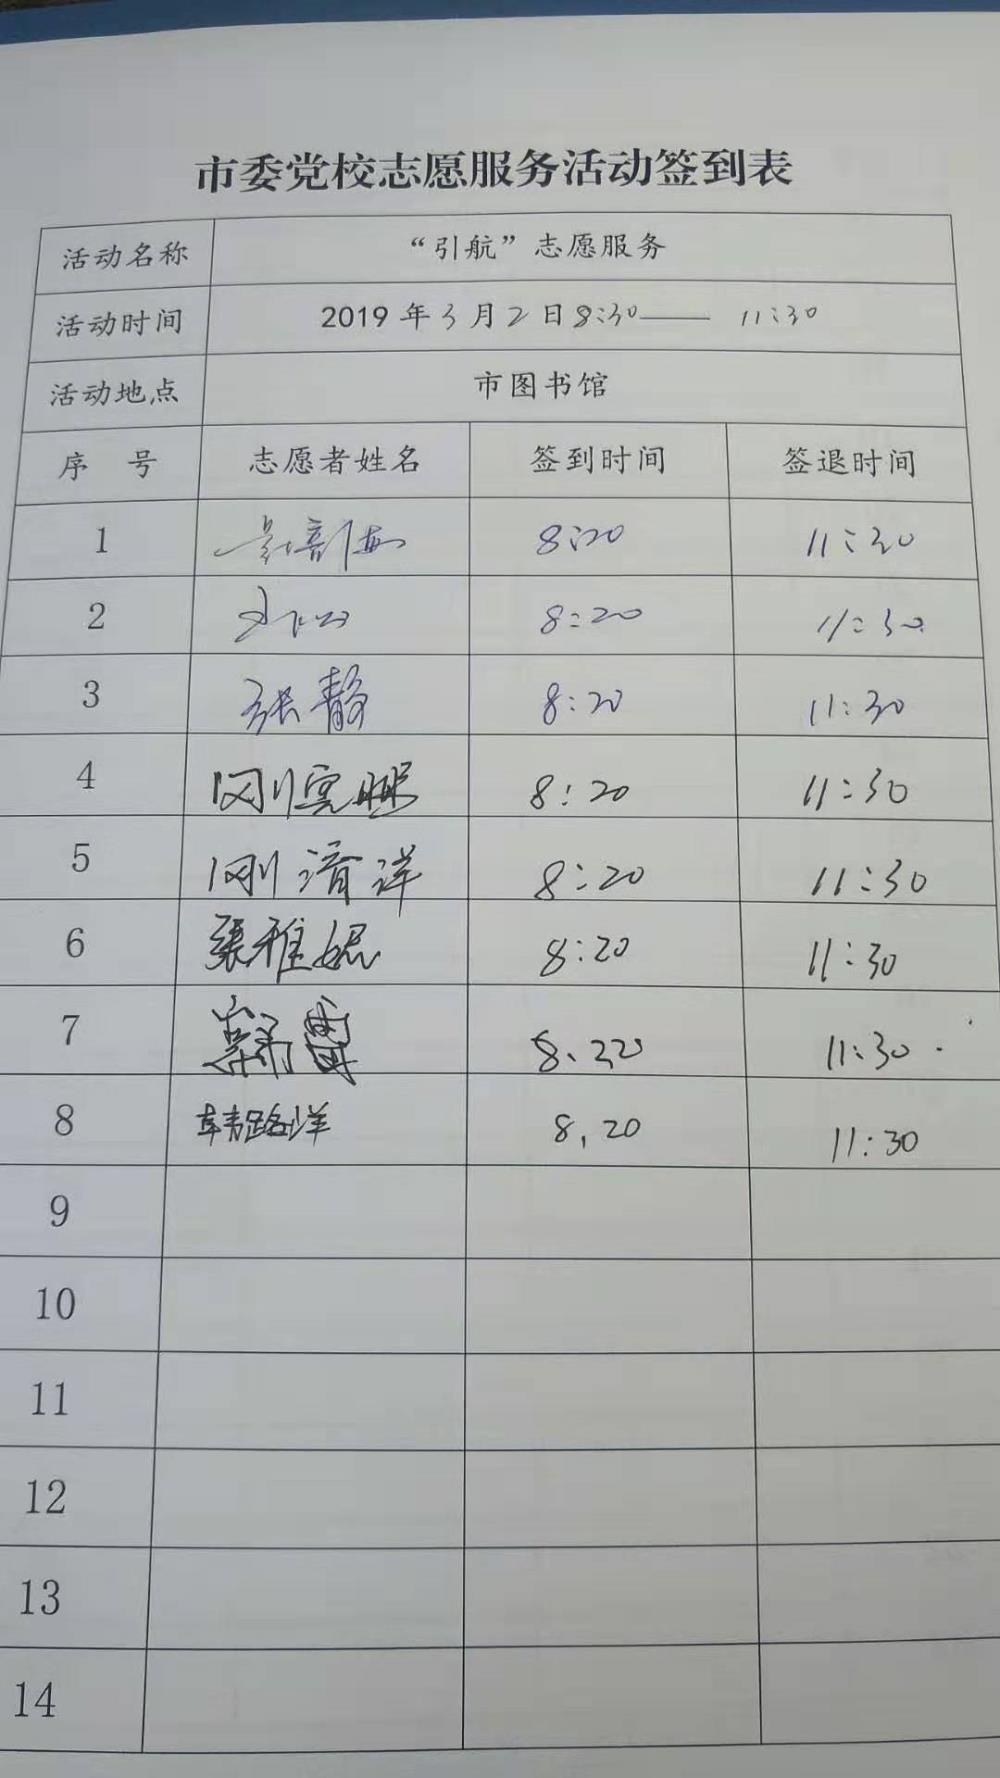 市委党校志愿服务活动签到表
活动名称 “引航”志愿服务
活动时间 2019年3月2日8:30—— 11:30
活动地点 市图书馆
序 号 志愿者姓名 签到时间 签退时间
1 8:20 11:30
2 8:20 11:30
3 张静 8:20 11:30
4 8:20 11:30
5 刚清洋 8:20 11:30
6 张雅妮 8:20 11:30
7 8.20 11:30
8 韩路洋 8,20 11:30
9
10
11
12
13
14